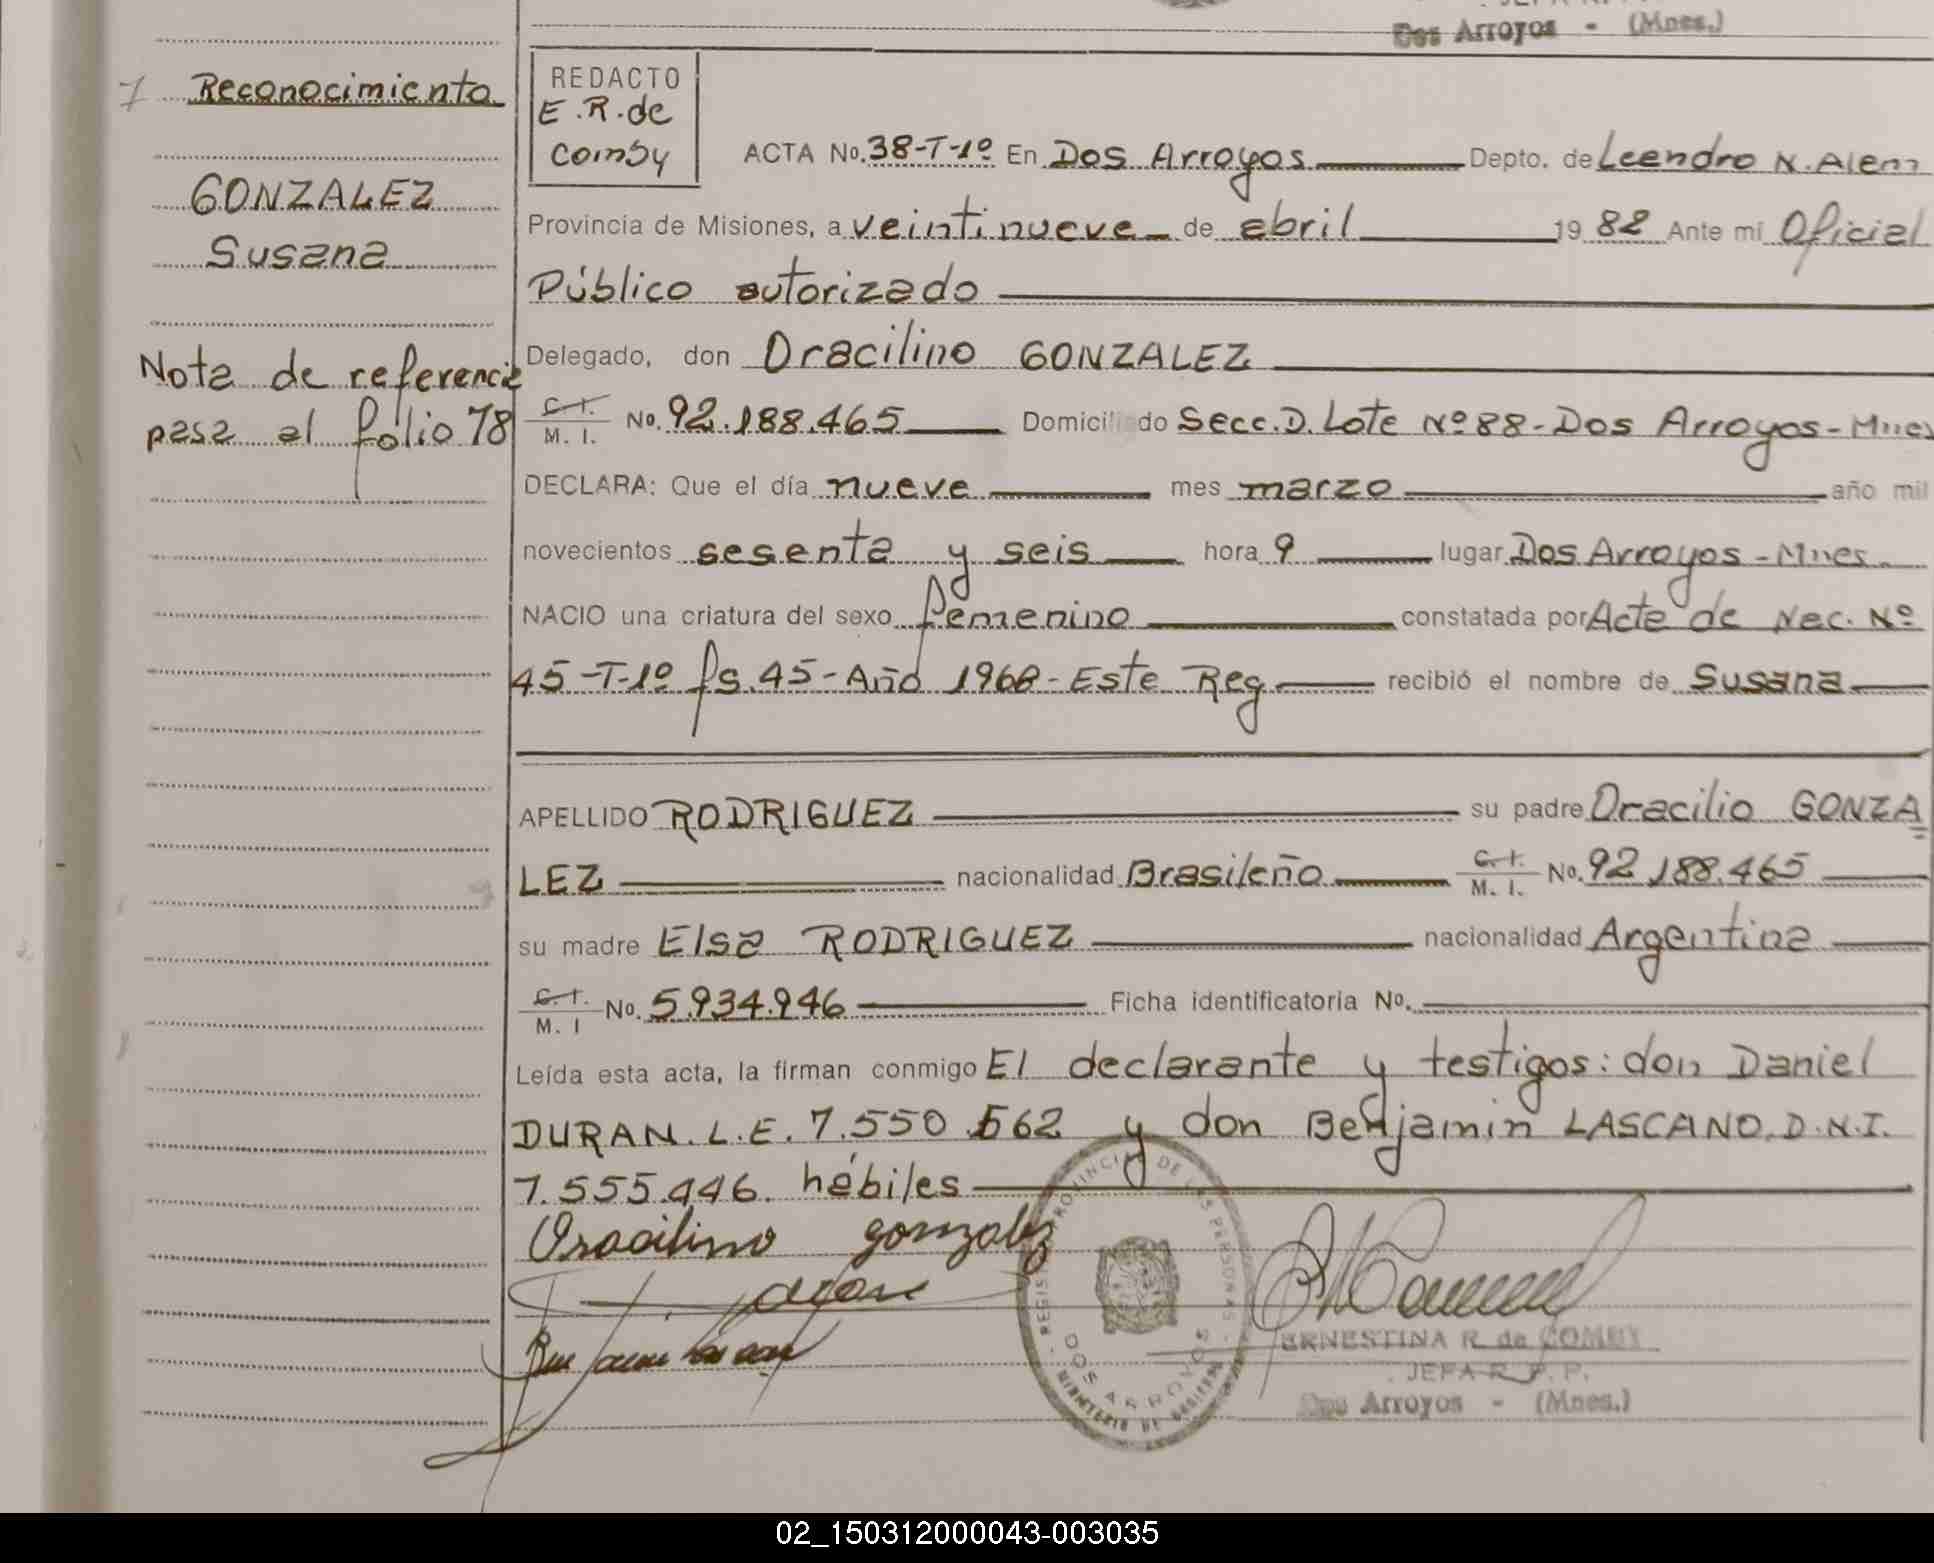 Dos Arroyos - (Mnes.)
Reconocimiento
GONZALEZ
Susana
Nota de referencia
pasa al folio 78
REDACTO
E.R.de
Comby
ACTA No. 38-T-1º En Dos Arroyos Depto. de Leandro N. Alem
Provincia de Misiones, a veintinueve de abril 1988 Ante mi Oficial
Público autorizado
Delegado, don Oracilino GONZALEZ
C.I. M. I. No. 92.188.465 Domiciliado Secc.D. Lote Nº 88-Dos Arroyos-Mnes
DECLARA: Que el día nueve mes marzo año mil
novecientos sesenta y seis hora 9 lugar Dos Arroyos-Mnes.
NACIO una criatura del sexo femenino constatada por Acta de Nac. Nº
45-T-1º fs.45-Año 1968-Este Reg recibió el nombre de Susana
APELLIDO RODRIGUEZ su padre Oracilio GONZA
LEZ nacionalidad Brasileño C.I. M. I. No. 92.188.465
su madre Elsa RODRIGUEZ nacionalidad Argentina
C.I. M. I No. 5.934.946 Ficha identificatoria No.
Leída esta acta, la firman conmigo El declarante y testigos: don Daniel
DURAN. L.E. 7.550.562 y don Benjamin LASCANO. D.N.I.
7.555.446. hábiles
Oracilino gonzalez
REGISTRO PROVINCIAL DE LAS PERSONAS
DOS ARROYOS
MINISTERIO DE GOBIERNO
ERNESTINA R. de COMBY
JEFA R. P. P.
Dos Arroyos - (Mnes.)
02_150312000043-003035